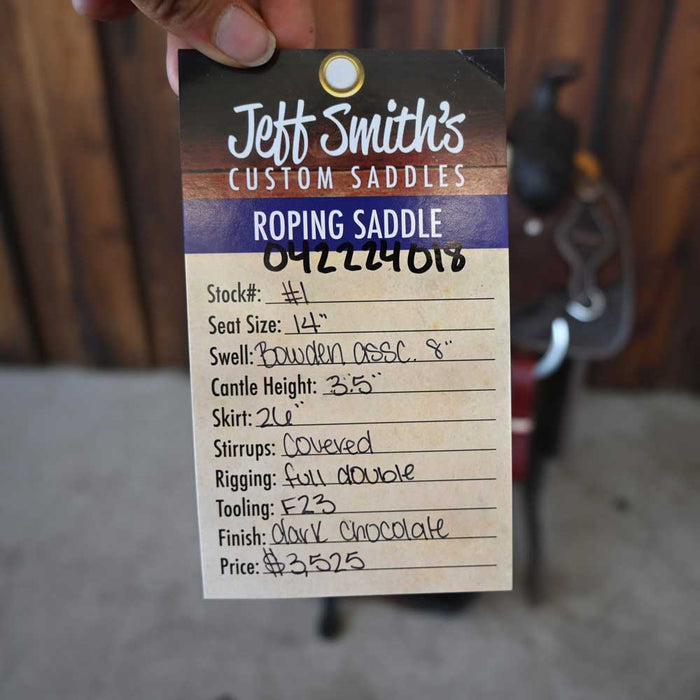 Jeff Smith's
CUSTOM SADDLES
ROPING SADDLE
042224018
Stock#: #1
Seat Size: 14"
Swell: Bowden assc. 8"
Cantle Height: 3.5"
Skirt: 26"
Stirrups: Covered
Rigging: full double
Tooling: F23
Finish: dark chocolate
Price: $3,525